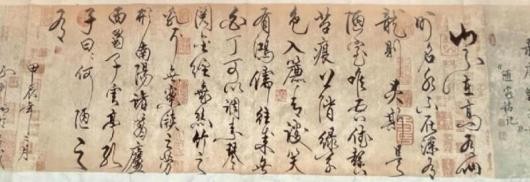 山不在高有仙
則名水不在深有
龍則靈斯是
陋室惟吾德馨
苔痕上階綠草
色入簾青談笑
有鴻儒往來無
白丁可以調素琴
閱金經無絲竹之
亂耳無案牘之勞
形南陽諸葛廬
西蜀子雲亭孔
子曰何陋之
有
甲辰年三月